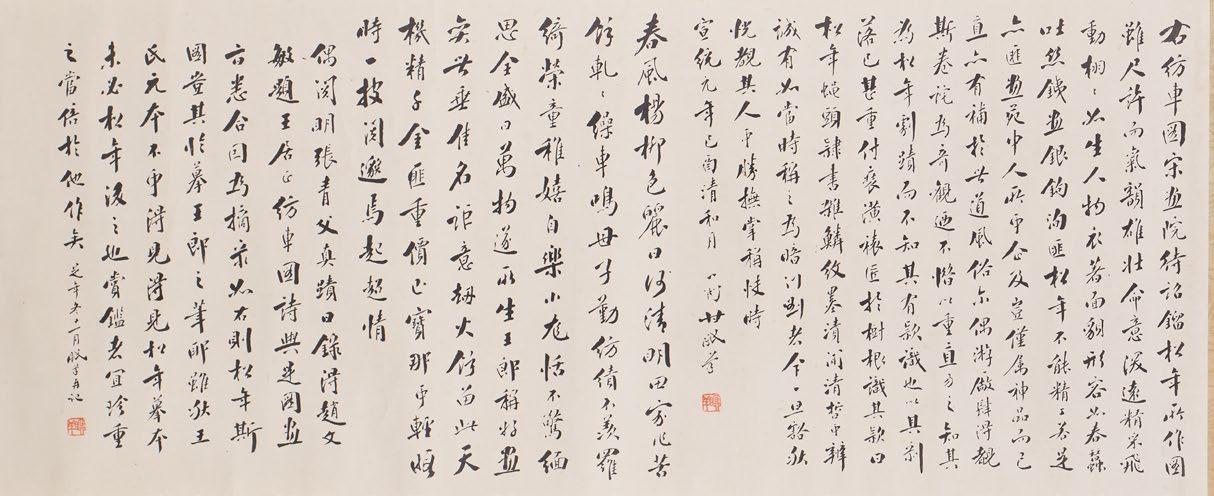 右紡車圖宋畫院待詔鎦松年所作圖
雖尺許而氣韻雄壯命意深遠精采飛
動栩〻如生人物衣著面貌形容如春蠶
吐絲鐵畫銀鉤洵匪松年不能精工若是
亦匪畫苑中人所可企及豈僅屬神品而已
直亦有補於世道風俗尔偶游肆得覩
斯卷詫為奇觀迺不惜以重直易之知其
為松年劇蹟而不知其有款識也以其剥
落已甚重付裝潢裱匠於樹根識其款曰
松年蠅頭隸書雜鱗紋墨漬間清晳可辨
誠有如當時稱之為暗门劉者今一旦豁然
怳觀其人中勝撫掌稱快時
宣統元年己酉清和月
春風楊柳色麗日何清明田家作苦
餘軋〻繅車鳴母子勤紡績不羨羅
綺榮童稚嬉自樂小尨恬不驚緬
思全盛日萬物遂所生王郎稱好畫
世垂佳名詎意劫火餘留此天
機精千金匪重價已寶那可輕臨
時一披閱邈焉起超情
偶閱明張青父真蹟日錄得趙文
敏題王居正紡車圖詩與是圖畫
亦悉合因為摘录如右則松年斯
圖豈其臨摹王郎之筆耶雖然王
氏元本不可得見得見松年摹本
未必松年後之也賞鑑者宜珍重
之當倍於他作矣 是年冬十一月再记